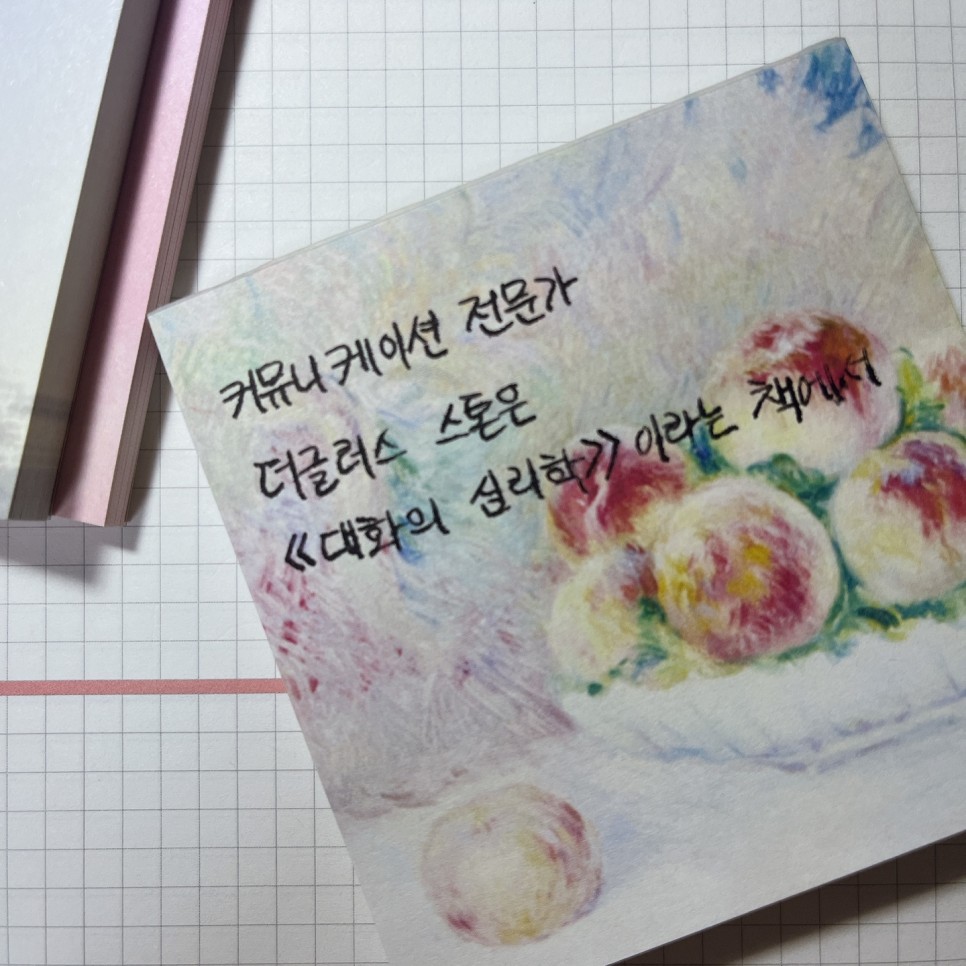 커뮤니케이션 전문가
더글러스 스톤은
《대화의 심리학》이라는 책에서